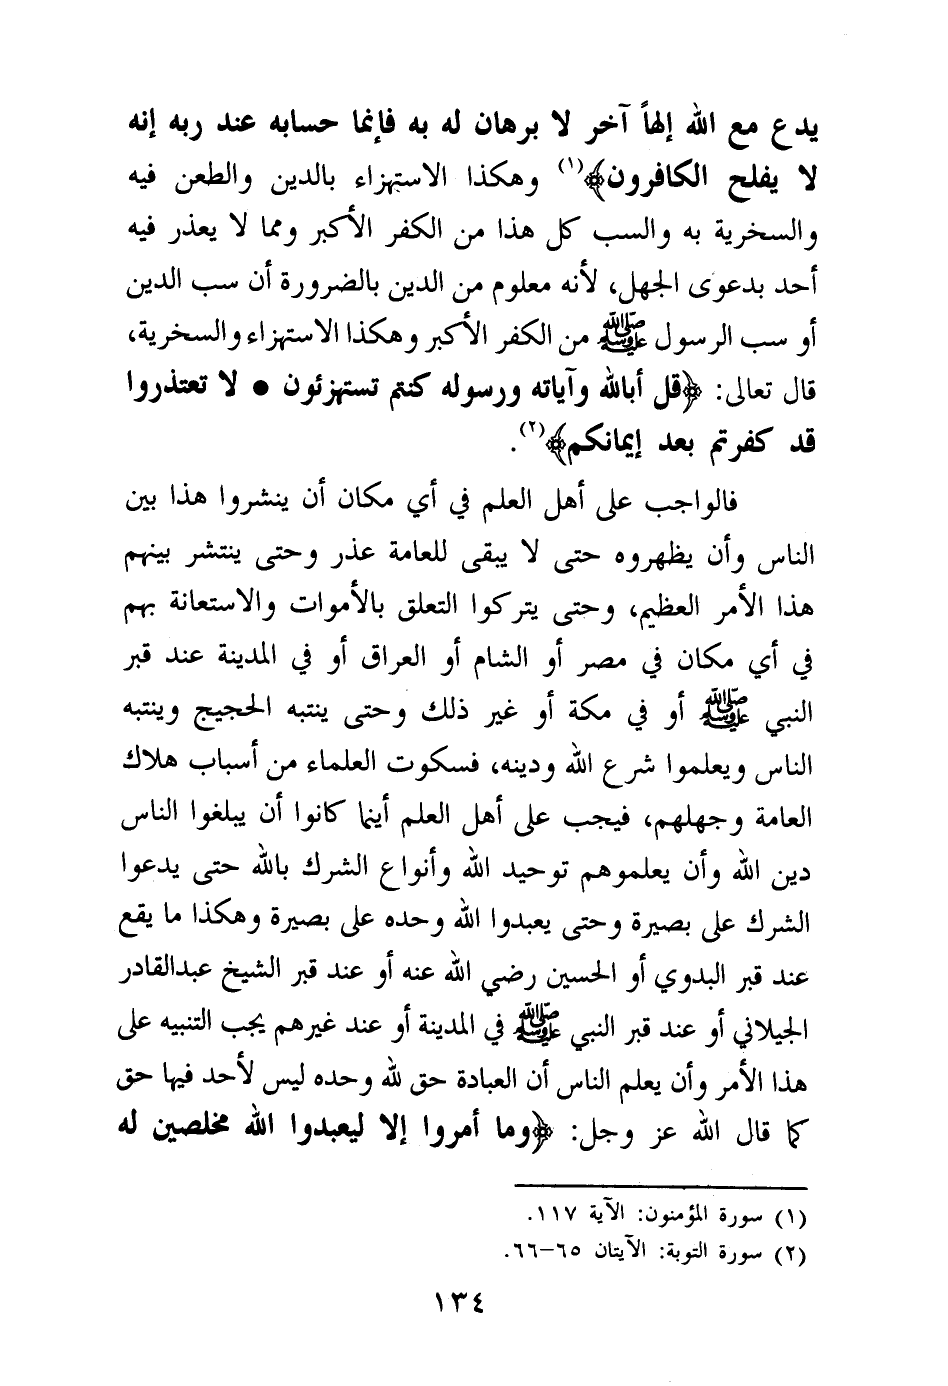 يدع مع الله إلهاً آخر لا برهان له به فإنما حسابه عند ربه إنه
لا يفلح الكافرون﴾(١) وهكذا الاستهزاء بالدين والطعن فيه
والسخرية به والسب كل هذا من الكفر الأكبر ومما لا يعذر فيه
أحد بدعوى الجهل، لأنه معلوم من الدين بالضرورة أن سب الدين
أو سب الرسول ﷺ من الكفر الأكبر وهكذا الاستهزاء والسخرية،
قال تعالى: ﴿قل أبالله وآياته ورسوله كنتم تستهزئون • لا تعتذروا
قد كفرتم بعد إيمانكم﴾(٢).
فالواجب على أهل العلم في أي مكان أن ينشروا هذا بين
الناس وأن يظهروه حتى لا يبقى للعامة عذر وحتى ينتشر بينهم
هذا الأمر العظيم، وحتى يتركوا التعلق بالأموات والاستعانة بهم
في أي مكان في مصر أو الشام أو العراق أو في المدينة عند قبر
النبي ﷺ أو في مكة أو غير ذلك وحتى ينتبه الحجيج وينتبه
الناس ويعلموا شرع الله ودينه، فسكوت العلماء من أسباب هلاك
العامة وجهلهم، فيجب على أهل العلم أينما كانوا أن يبلغوا الناس
دين الله وأن يعلموهم توحيد الله وأنواع الشرك بالله حتى يدعوا
الشرك على بصيرة وحتى يعبدوا الله وحده على بصيرة وهكذا ما يقع
عند قبر البدوي أو الحسين رضي الله عنه أو عند قبر الشيخ عبدالقادر
الجيلاني أو عند قبر النبي ﷺ في المدينة أو عند غيرهم يجب التنبيه على
هذا الأمر وأن يعلم الناس أن العبادة حق لله وحده ليس لأحد فيها حق
كما قال الله عز وجل: ﴿وما أمروا إلا ليعبدوا الله مخلصين له
(١) سورة المؤمنون: الآية ١١٧.
(٢) سورة التوبة: الآيتان ٦٥–٦٦.
١٣٤